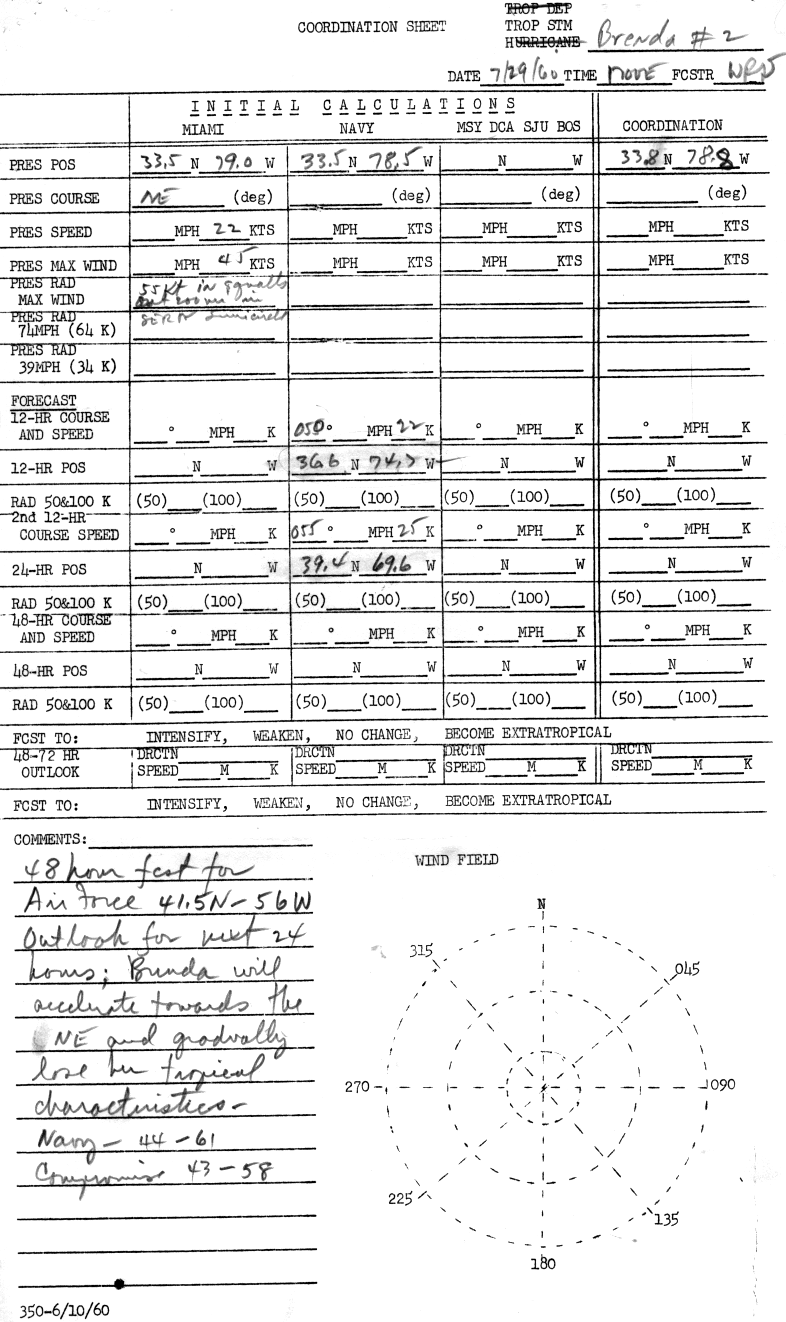 COORDINATION SHEET
TROP DEP
TROP STM
HURRICANE Brenda # 2
DATE 7/29/60 TIME noon FCSTR
INITIAL CALCULATIONS
MIAMI NAVY MSY DCA SJU BOS COORDINATION
PRES POS 33.5 N 79.0 W 33.5 N 78.5 W N W 33.8 N 78.8 W
PRES COURSE NE (deg) (deg) (deg) (deg)
PRES SPEED MPH 22 KTS MPH KTS MPH KTS MPH KTS
PRES MAX WIND MPH 45 KTS MPH KTS MPH KTS MPH KTS
PRES RAD
MAX WIND 55 Kt in squalls
PRES RAD
74MPH (64 K)
PRES RAD
39MPH (34 K)
FORECAST
12-HR COURSE
AND SPEED ° MPH K 050° MPH 22 K ° MPH K ° MPH K
12-HR POS N W 36.6 N 74.5 W N W N W
RAD 50&100 K (50) (100) (50) (100) (50) (100) (50) (100)
2nd 12-HR
COURSE SPEED ° MPH K 055° MPH 25 K ° MPH K ° MPH K
24-HR POS N W 39.4 N 69.6 W N W N W
RAD 50&100 K (50) (100) (50) (100) (50) (100) (50) (100)
48-HR COURSE
AND SPEED ° MPH K ° MPH K ° MPH K ° MPH K
48-HR POS N W N W N W N W
RAD 50&100 K (50) (100) (50) (100) (50) (100) (50) (100)
FCST TO: INTENSIFY, WEAKEN, NO CHANGE, BECOME EXTRATROPICAL
48-72 HR DRCTN DRCTN DRCTN DRCTN
OUTLOOK SPEED M K SPEED M K SPEED M K SPEED M K
FCST TO: INTENSIFY, WEAKEN, NO CHANGE, BECOME EXTRATROPICAL
COMMENTS:
48 hour fcst for
Air Force 41.5N-56W
Outlook for next 24
hours; Brenda will
accelerate towards the
NE and gradually
lose her tropical
characteristics-
Navy - 44 - 61
Compromise 43 - 58
WIND FIELD
N
315
045
270
090
225
135
180
350-6/10/60